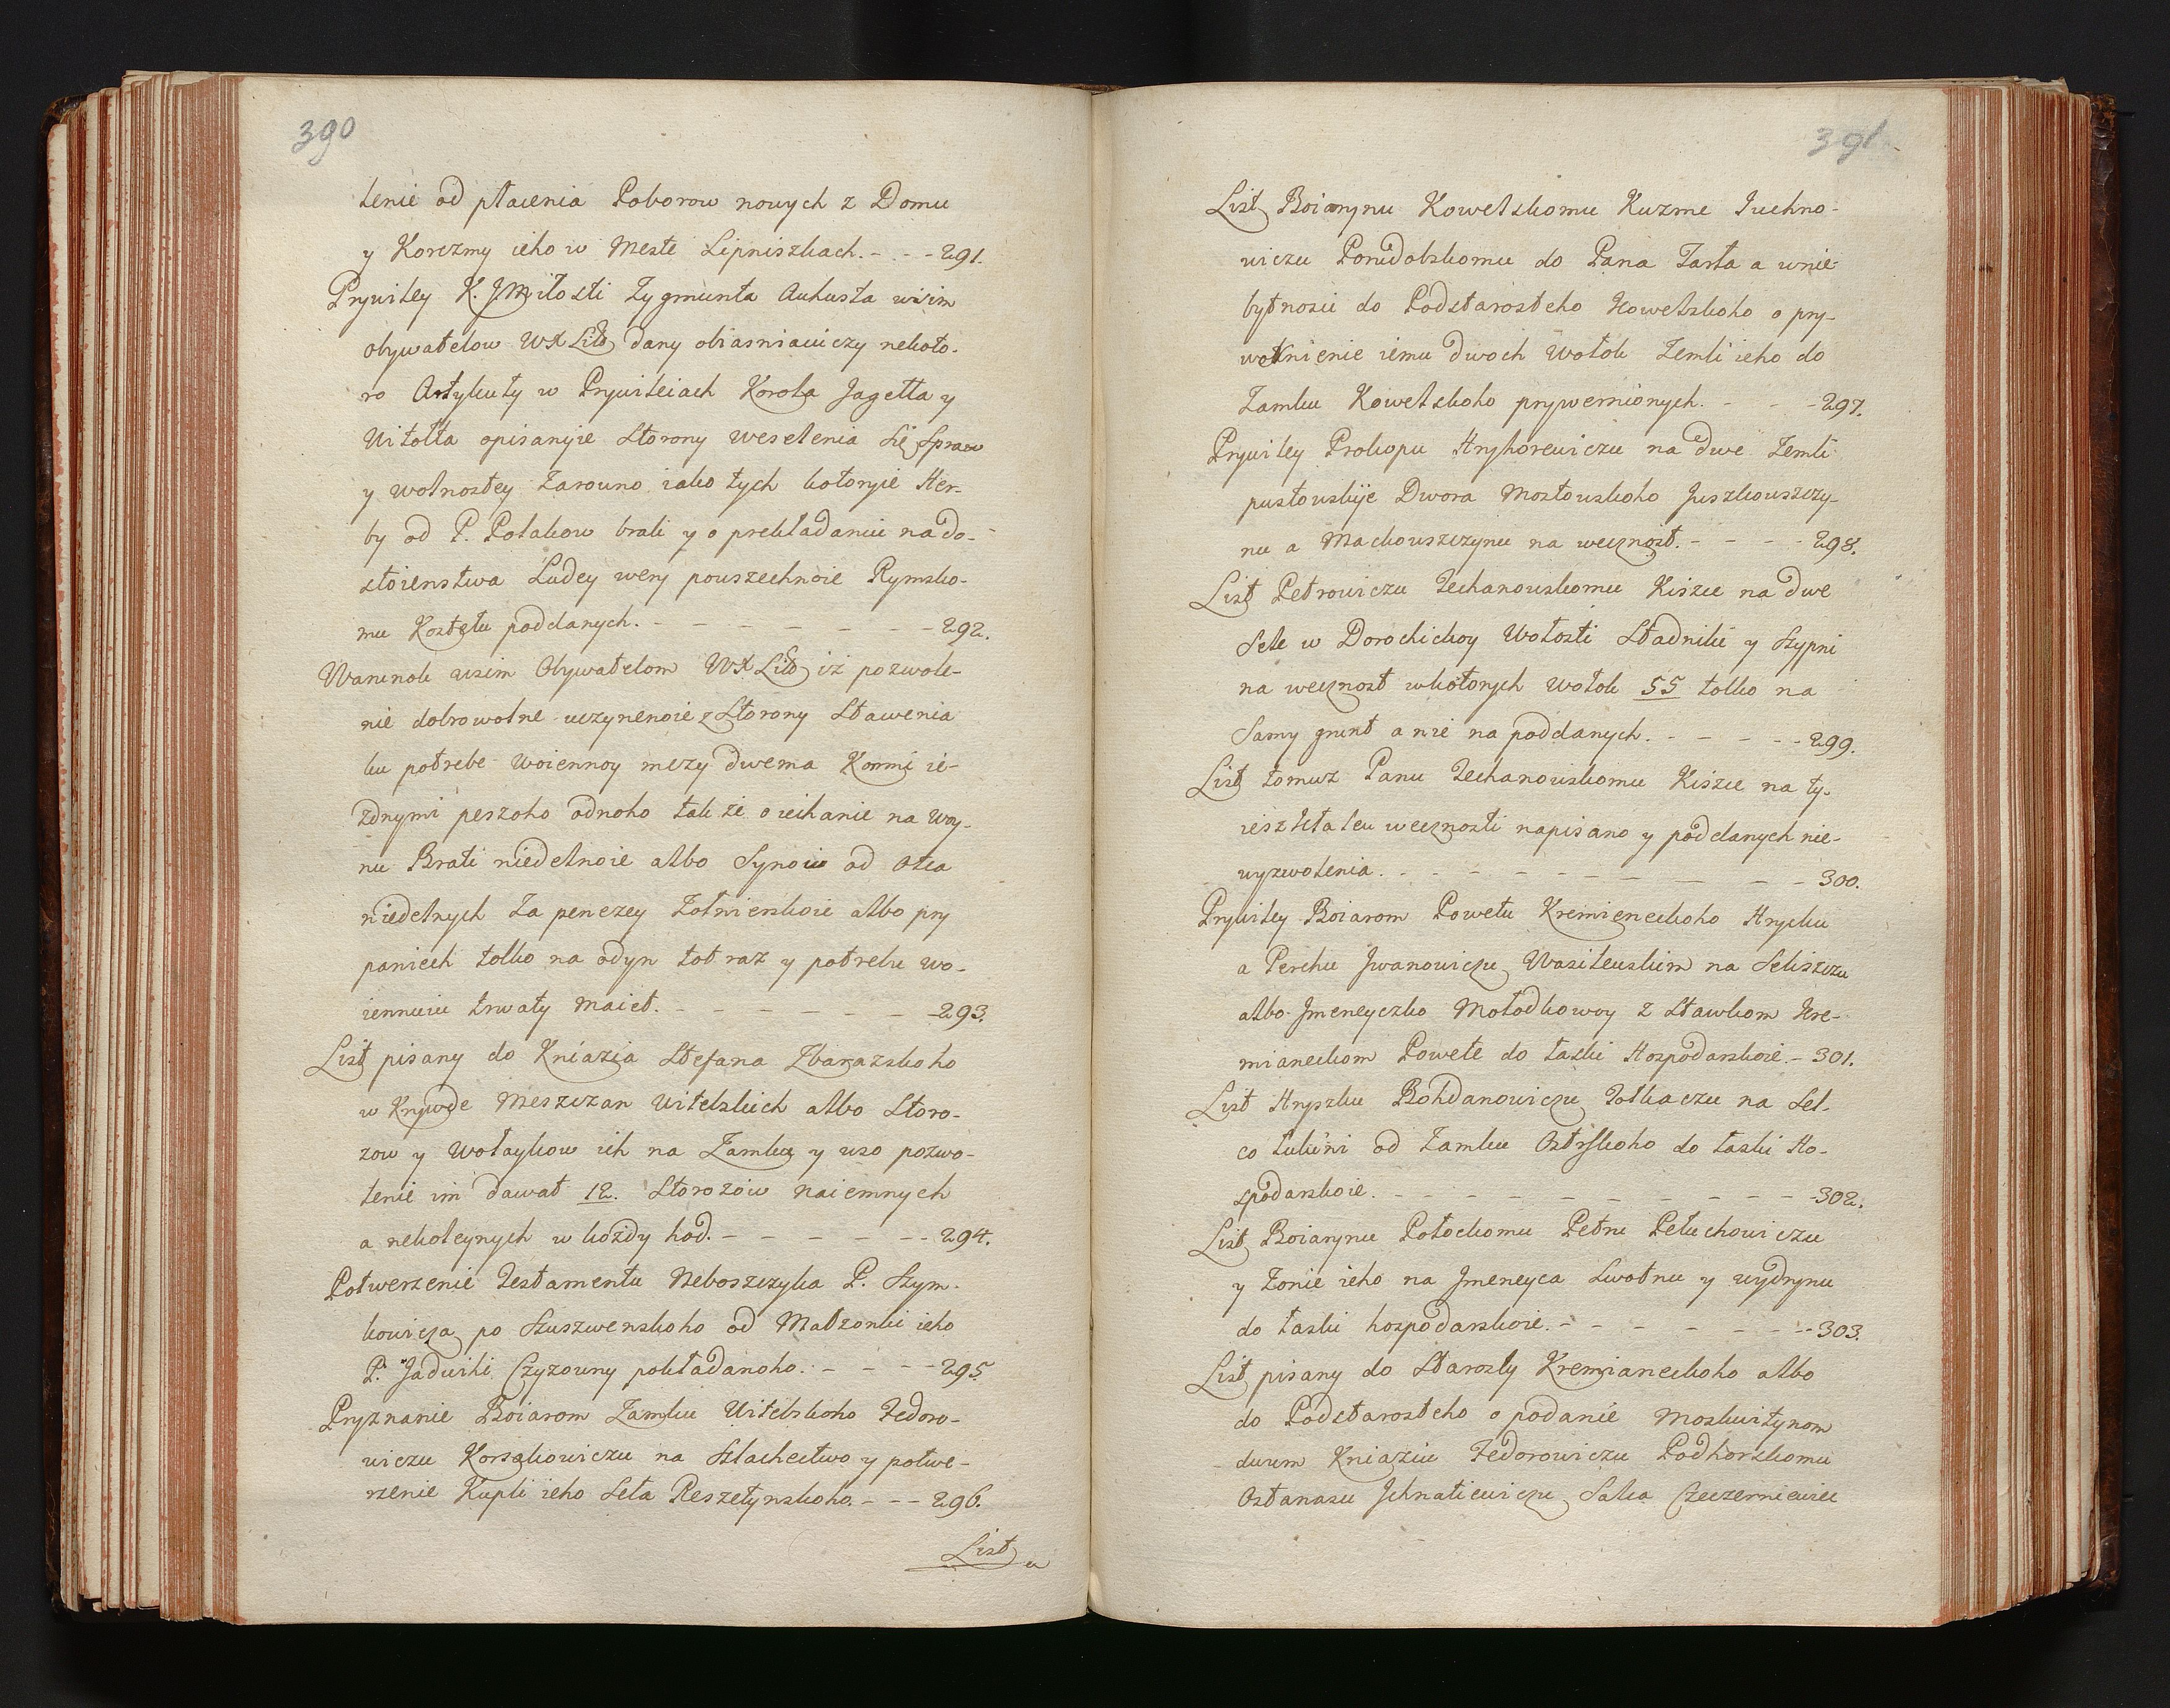 390
lenie od płacenia Poborow nowych z Domu
y Korczmy ieho w Meste Lipniszkach. - - - 291.
Prywiley K. JMiłosti Zygmunta Auhusta wsim
Obywatelow WX Lito dany obiasniaiuczy nekoto-
ro Artykuły w Prywileiach Korola Jagełła y
Witołta opisanyie storony weselenia się spraw
y wolnostey Zarowno iako tych kotoryie Her-
by od P. Polakow brali y o prekładaniu na do-
stoienstwa Ludey wery powszechnoie Rymsko-
mu Kostełu poddanych. - - - - - - 292.
Warunok wsim Obywatelom WX Lito iż pozwole-
nie dobrowolne uczynenoie z Storony Stawenia
ku potrebe woiennoy mezy dwema Konmi ie-
zdnymi peszoho odnoho tak że o iechanie na Woy-
nu Brati niedelnoie albo Synow od Otca
niedelnych Za penezey Zołnierskoie albo pry
paniech tolko na odyn tot raz y potrebu wo-
iennuiu trwały maiet. - - - - - - 293.
List pisany do Kniazia Stefana Zbarazskoho
w Krywde Meszczan Witebskich albo Storo-
zow y Wotaykow ich na Zamku y uso pozwo-
lenie im dawat 12. Storozow naiemnych
a nekoleynych w kożdy hod. - - - - - 294.
Potwerzenie Testamentu Neboszczyka P. Szym-
kowicza po Szuszwenskoho od Małzonki ieho
P. Jadwihi Czyzowny pokładanoho. - - - - 295.
Pryznanie Boiarom Zamku Witebskoho Fedoro-
wiczu Korsakowiczu na Szlachectwo y potwe-
rzenie Kupli ieho Sela Reszetynskoho. - - - 296.
List
391.
List Boiarynu Kowelskomu Kuzme Juchno-
wiczu Ponidobskomu do Pana Zarła a wnie-
bytnosci do Podstarosteho Kowelskoho o pry-
wołnienie iemu dwoch Wołok Zemli ieho do
Zamku Kowelskoho prywernionych. - - - 297.
Prywiley Prokopu Hryhorewiczu na dwe Zemli
pustowskije Dwora Mostowskoho Juszkowszczy-
nu a Mackowszczynu na wecznost. - - - - 298.
List Petrowiczu Techanowskomu Kiszce na dwe
Sele w Dorochickoy Wołosti Stadniki y Szypni
na wecznost wkotorych Wołok 55 tolko na
Samy grunt a nie na poddanych. - - - - - 299.
List tomuz Panu Techanowskomu Kiszce na ty-
wecznosti napisano y poddanych nie-
wyzwolenia. - - - - - - - - - - 300.
Prywiley Boiarom Powetu Kremieneckoho Hrycku
a Perchu Jwanowiczu Wasilewskim na Seliszczu
albo Jmeneyczko Mołodkowoy z Stawkom Kre-
mianeckom Powete do łaski Hospodarskoie. - 301.
List Hryszku Bohdanowiczu Tołkaczu na Sel-
co Lukini od Zamku Ostrskoho do łaski Ho-
spodarskoie. - - - - - - - - - - 302.
List Boiarynu Połockomu Petru Petuchowiczu
y Zonie ieho na Jmeneyca Swołnu y wydrynu
do łaski hospodarskoie. - - - - - - - 303.
List pisany do Starosty Kremianeckoho albo
do Podstarosteho o podanie Moskwitynom
dwum Kniaziu Fedorowiczu Podhorskomu
Ostanasu Jchnatiewiczu Saka Czeczerniewiec